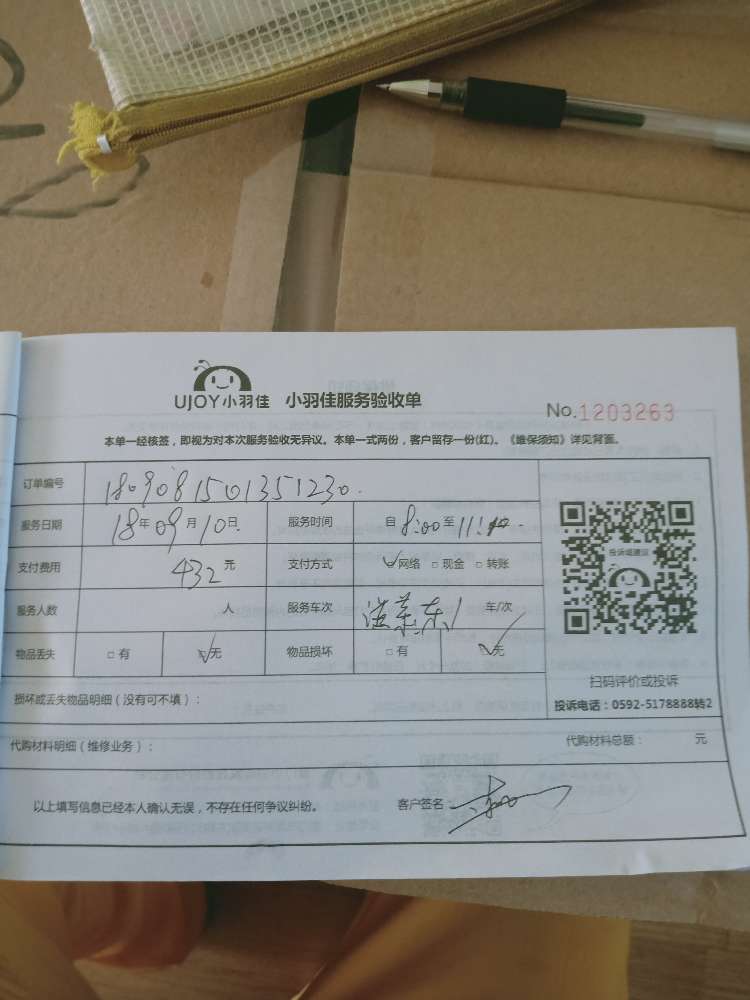 UJOY小羽佳 小羽佳服务验收单 No.1203263
本单一经核签，即视为对本次服务验收无异议。本单一式两份，客户留存一份(红)。《维保须知》详见背面。
订单编号 180908150135123​0
服务日期 18年09月10日 服务时间 自8:00至11:
支付费用 432元 支付方式 网络 现金 转账
服务人数 人 服务车次 车/次
物品丢失 有 无 物品损坏 有 无
投诉或建议
扫码评价或投诉
损坏或丢失物品明细（没有可不填）： 投诉电话：0592-5178888转2
代购材料明细（维修业务）： 代购材料总额： 元
以上填写信息已经本人确认无误，不存在任何争议纠纷。 客户签名：